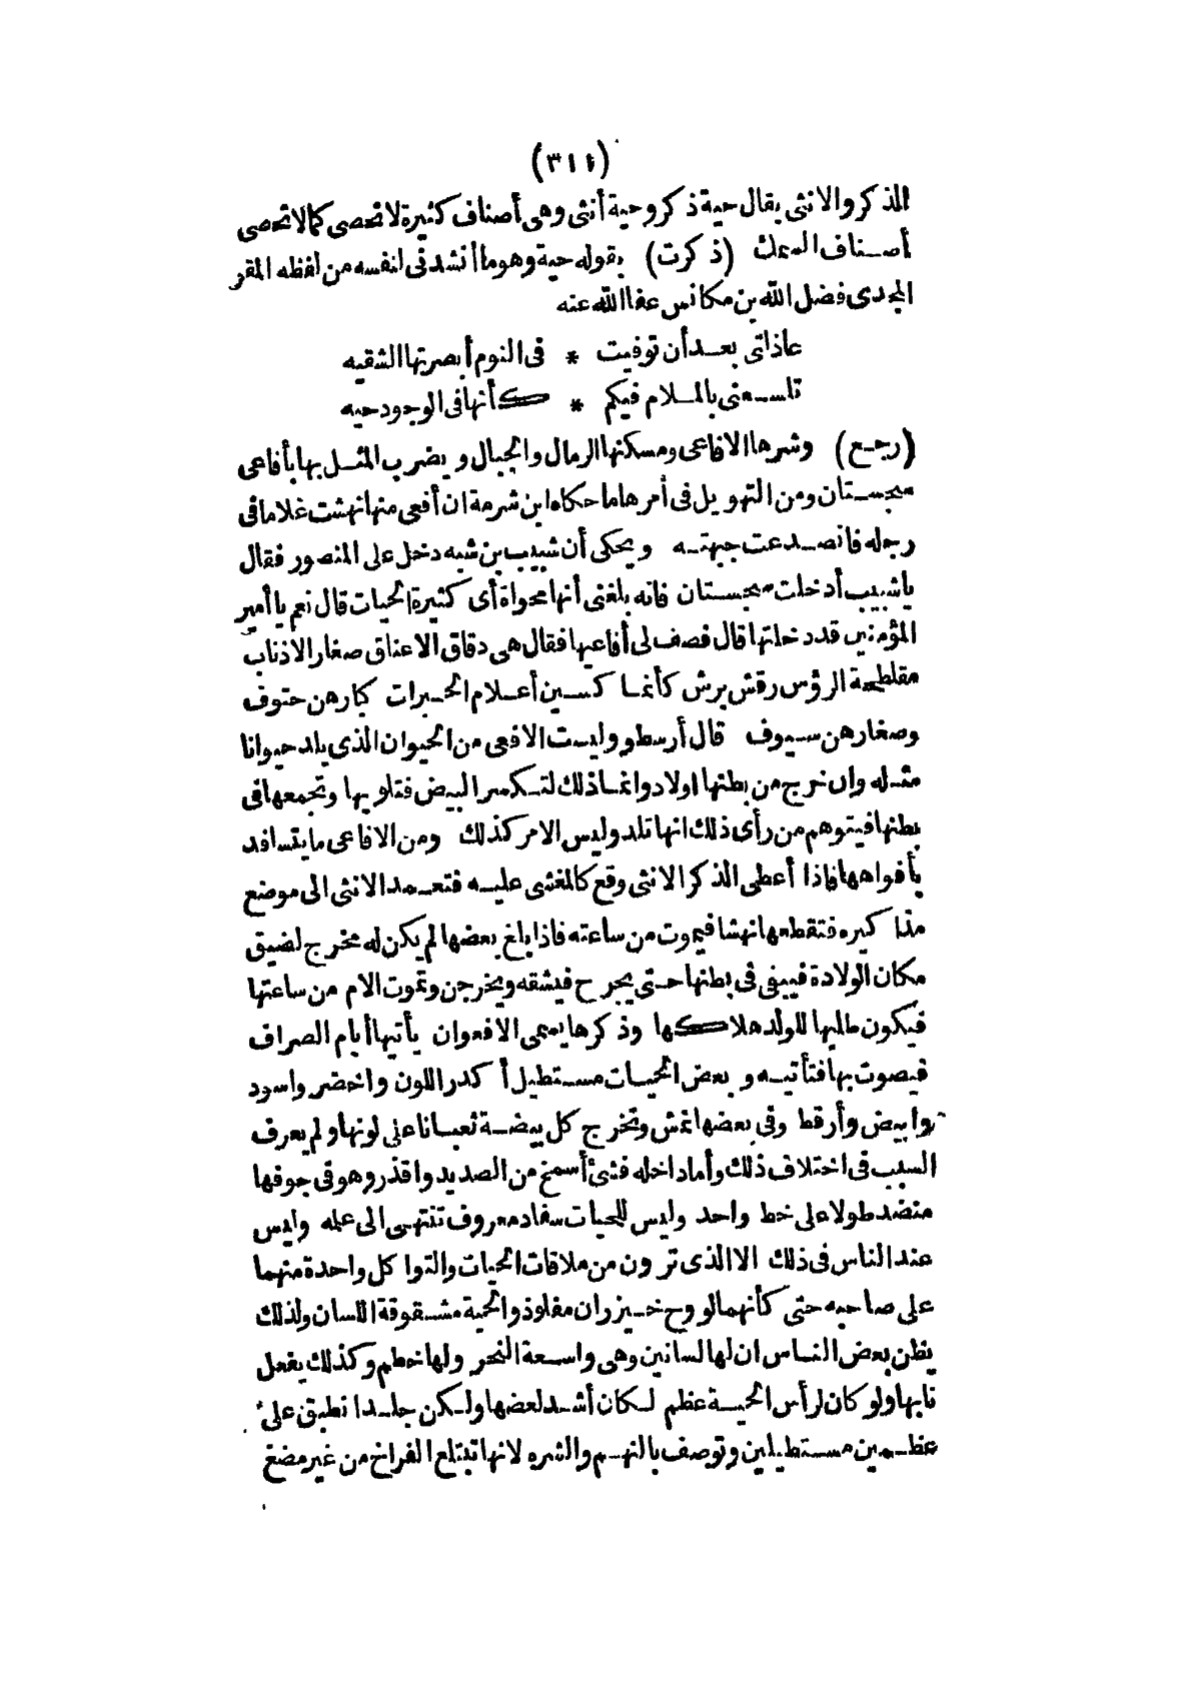 (٣١٤)
الذكر والانثى يقال حية ذكر وحية أنثى وهى أصناف كثيرة لا تحصى كما لا تحصى
أصناف السمك (ذكرت) بقوله حية وهو ما أنشدنى لنفسه من لفظه المقر
المجدى فضل الله بن مكانس عفا الله عنه
عاذلتى بعد أن توفيت * فى النوم أبصرتها الشقيه
تلسعنى بالملام فيكم * كأنها فى الوجود حيه
(رجع) وشرها الافاعى ومسكنها الرمال والجبال ويضرب المثل بها بأفاعى
سجستان ومن التهويل فى أمرها ما حكاه ابن شبرمة ان أفعى منها نهشت غلاما فى
رجله فانصدعت جبهته ويحكى أن شبيب بن شبه دخل على المنصور فقال
ياشبيب أدخلت سجستان فانه بلغنى أنها محواة أى كثيرة الحيات قال نعم يا أمير
المؤمنين قد دخلتها قال فصف لى أفاعيها فقال هى دقاق الاعناق صغار الاذناب
مقلطحة الرؤس رقش برش كأنما كسين أعلام الحبرات كبارهن حتوف
وصغارهن سيوف قال أرسطو وليست الافعى من الحيوان الذى يلد حيوانا
مثله وان خرج من بطنها اولاد وانما ذلك لتكسر البيض فتلويها وتجمعها فى
بطنها فيتوهم من رأى ذلك انها تلد وليس الامر كذلك ومن الافاعى ما يتسافد
بأفواهها فاذا أعطى الذكر الانثى وقع كالمغشى عليه فتعمد الانثى الى موضع
مذاكيره فتقطعها نهشا فيموت من ساعته فاذا بلغ بعضها لم يكن له مخرج لضيق
مكان الولادة فيبقى فى بطنها حتى يجرح فيشقه ويخرجن وتموت الام من ساعتها
فيكون طلبها للولد هلاكها وذكرها يسمى الافعوان يأتيها أيام الصراف
فيصوت بها فتأتيه وبعض الحيات مستطيل أكدر اللون واخضر واسود
وابيض وأرقط وفى بعضها نمش وتخرج كل بيضة ثعبانا على لونها ولم يعرف
السبب فى اختلاف ذلك وأما داخله فشئ أسمج من الصديد واقذر وهو فى جوفها
منضد طولا على خط واحد وليس للحيات سفاد معروف تنتهى الى علمه وليس
عند الناس فى ذلك الا الذى ترون من ملاقات الحيات والتوا كل واحدة منهما
على صاحبه حتى كأنهما لو وح خيزران مفلوذ والحية مشقوقة اللسان ولذلك
يظن بعض الناس ان لها لسانين وهى واسعة النحر ولها خطم وكذلك يفعل
نابها ولو كان لرأس الحية عظم لكان أشد لعضها ولكن جلدا نطبق على
عظمين مستطيلين وتوصف بالنهم والشره لانها تبتلع الفراخ من غير مضغ